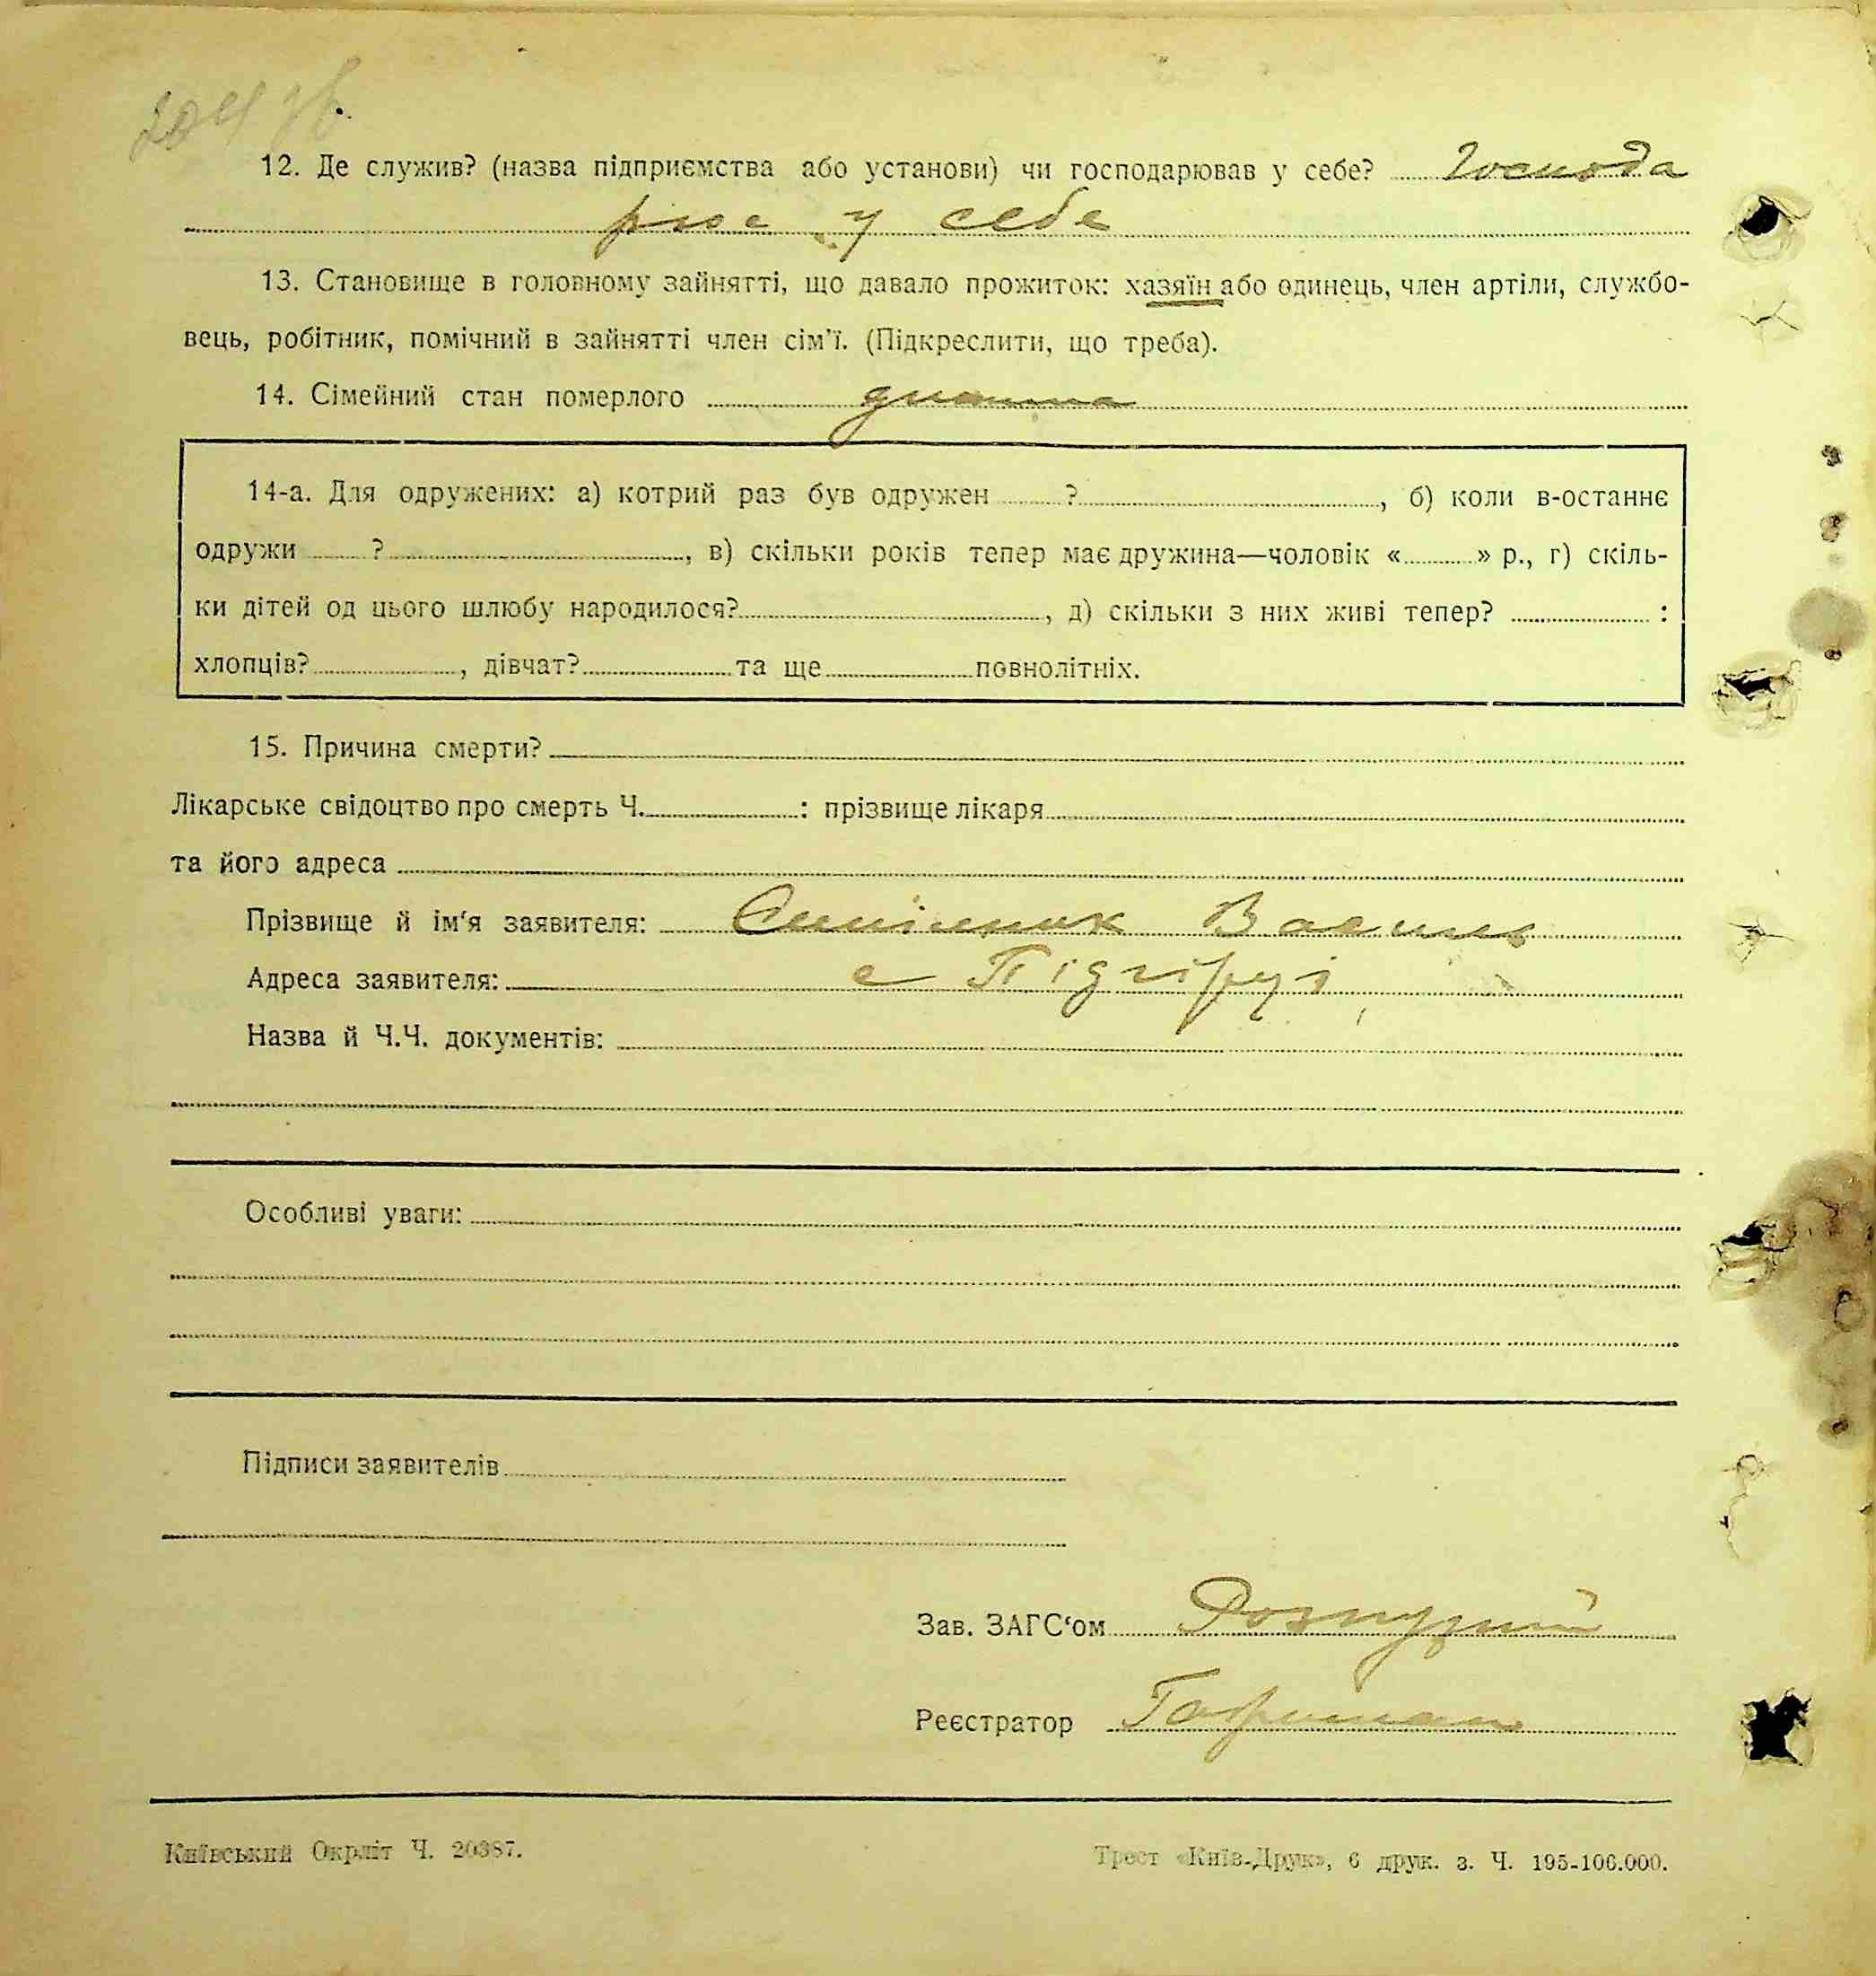 204
12. Де служив? (назва підприємства або установи) чи господарював у себе? Господа
рює у себе
13. Становище в головному зайнятті, що давало прожиток: хазяїн або одинець, член артіли, службо-
вець, робітник, помічний в зайнятті член сім'ї. (Підкреслити, що треба).
14. Сімейний стан померлого
14-а. Для одружених: а) котрий раз був одружен ?, б) коли в-останнє
одружи ?, в) скільки років тепер має дружина—чоловік « » р., г) скіль-
ки дітей од цього шлюбу народилося?, д) скільки з них живі тепер? :
хлопців?, дівчат? та ще повнолітніх.
15. Причина смерти?
Лікарське свідоцтво про смерть Ч. : прізвище лікаря
та його адреса
Прізвище й ім'я заявителя: Василь
Адреса заявителя: с Підгірці
Назва й Ч.Ч. документів:
Особливі уваги:
Підписи заявителів
Зав. ЗАГС'ом
Реєстратор
Київський Окрліт Ч. 20387.
Трест «Київ-Друк», 6 друк. з. Ч. 195-100.000.